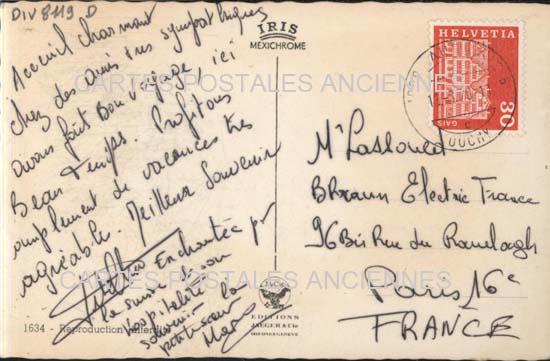 DIV 8119 D
Accueil charmant
chez des amis très sympathiques
avons fait Bon voyage, ici
Beau temps. Profitons
complement de vacances très
agréable. Meilleur Souvenir
Enchantée pr
la suisse et son
hospitalité
souvenir
IRIS
MEXICHROME
HELVETIA
30
GAIS
OUCHY
Mr
Electric France
96 Bis Rue du Ranelagh
Paris 16e
FRANCE
CARTES POSTALES ANCIENNES
CARTES POSTALES ANCIENNES
EDITIONS
JAEGER & Cie
1634 - Reproduction interdite